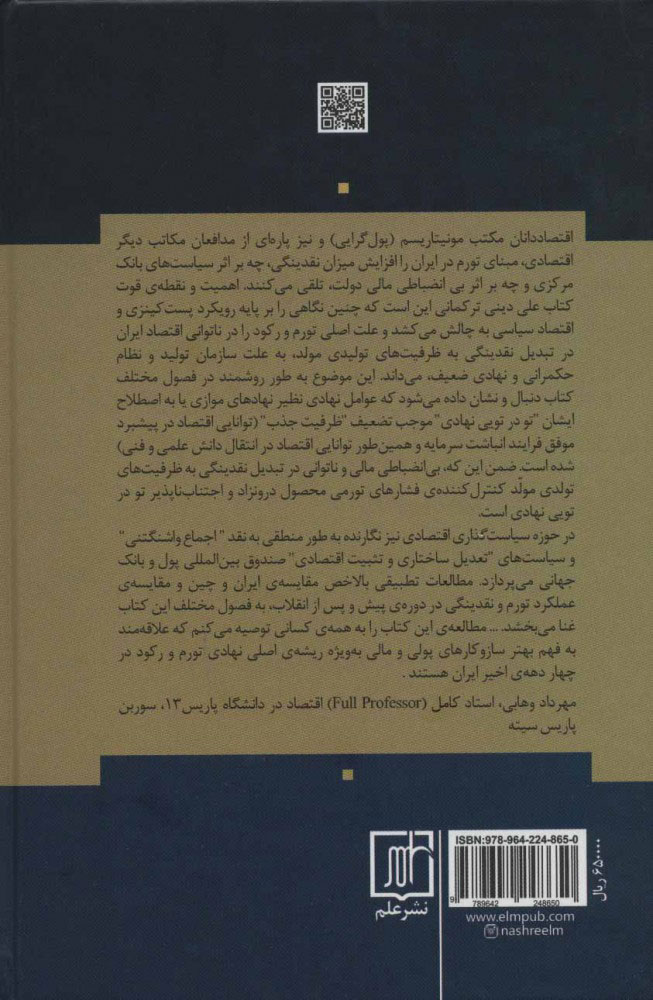 اقتصاددانان مکتب مونیتاریسم (پول‌گرایی) و نیز پاره‌ای از مدافعان مکاتب دیگر
اقتصادی، مبنای تورم در ایران را افزایش میزان نقدینگی، چه بر اثر سیاست‌های بانک
مرکزی و چه بر اثر بی انضباطی مالی دولت، تلقی می‌کنند. اهمیت و نقطه‌ی قوت
کتاب علی دینی ترکمانی این است که چنین نگاهی را بر پایه رویکرد پست‌کینزی و
اقتصاد سیاسی به چالش می‌کشد و علت اصلی تورم و رکود را در ناتوانی اقتصاد ایران
در تبدیل نقدینگی به ظرفیت‌های تولیدی مولد، به علت سازمان تولید و نظام
حکمرانی و نهادی ضعیف، می‌داند. این موضوع به طور روشمند در فصول مختلف
کتاب دنبال و نشان داده می‌شود که عوامل نهادی نظیر نهادهای موازی یا به اصطلاح
ایشان "تو در تویی نهادی" موجب تضعیف "ظرفیت جذب" (توانایی اقتصاد در پیشبرد
موفق فرایند انباشت سرمایه و همین‌طور توانایی اقتصاد در انتقال دانش علمی و فنی)
شده است. ضمن این که، بی‌انضباطی مالی و ناتوانی در تبدیل نقدینگی به ظرفیت‌های
تولدی مولّد کنترل‌کننده‌ی فشارهای تورمی محصول درونزاد و اجتناب‌ناپذیر تو در
تویی نهادی است.
در حوزه سیاست‌گذاری اقتصادی نیز نگارنده به طور منطقی به نقد "اجماع واشنگتنی"
و سیاست‌های "تعدیل ساختاری و تثبیت اقتصادی" صندوق بین‌المللی پول و بانک
جهانی می‌پردازد. مطالعات تطبیقی بالاخص مقایسه‌ی ایران و چین و مقایسه‌ی
عملکرد تورم و نقدینگی در دوره‌ی پیش و پس از انقلاب، به فصول مختلف این کتاب
غنا می‌بخشد. ... مطالعه‌ی این کتاب را به همه‌ی کسانی توصیه می‌کنم که علاقه‌مند
به فهم بهتر سازوکارهای پولی و مالی به‌ویژه ریشه‌ی اصلی نهادی تورم و رکود در
چهار دهه‌ی اخیر ایران هستند .
مهرداد وهابی، استاد کامل (Full Professor) اقتصاد در دانشگاه پاریس ۱۳، سوربن
پاریس سیته
نشر علم
ISBN:978-964-224-865-0
9 789642 248650
www.elmpub.com
nashreelm
۶۵۰۰۰۰ ریال